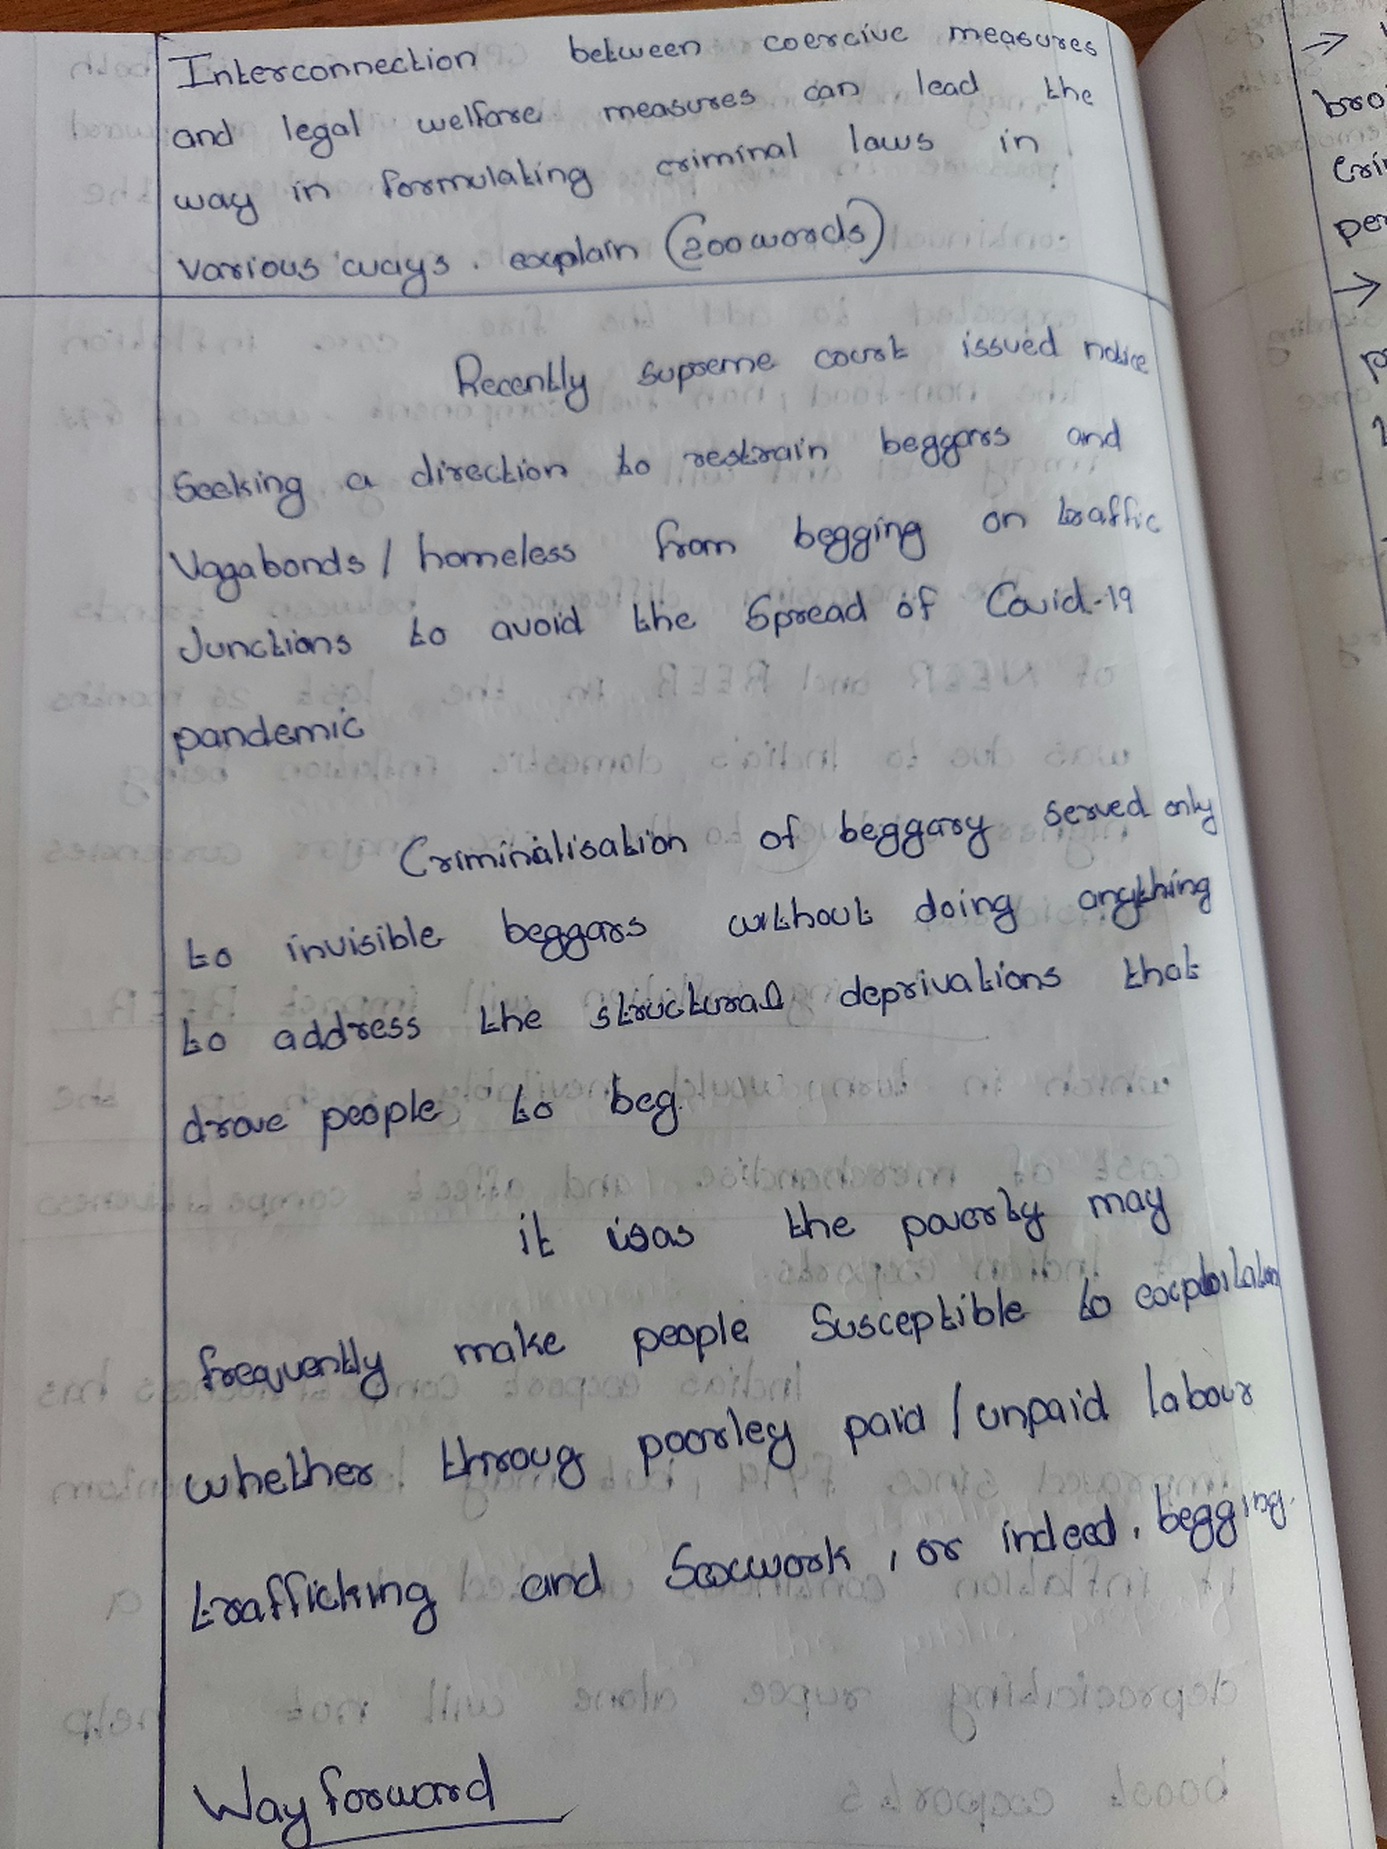 Interconnection between coercive measures
and legal welfare measures can lead the
way in formulating criminal laws in
various ways. explain (200 words)
Recently supreme court issued notice
Seeking a direction to restrain beggars and
Vagabonds / homeless from begging on traffic
Junctions to avoid the Spread of Covid-19
pandemic
Criminalisation of beggary served only
to invisible beggars without doing anything
to address the structural deprivations that
drove people to beg.
it was the poverty may
frequently make people Susceptible to exploitation
whether throug poorley paid / unpaid labour
trafficking and Sexwork, or indeed, begging.
Way forward
bro
Cri
per